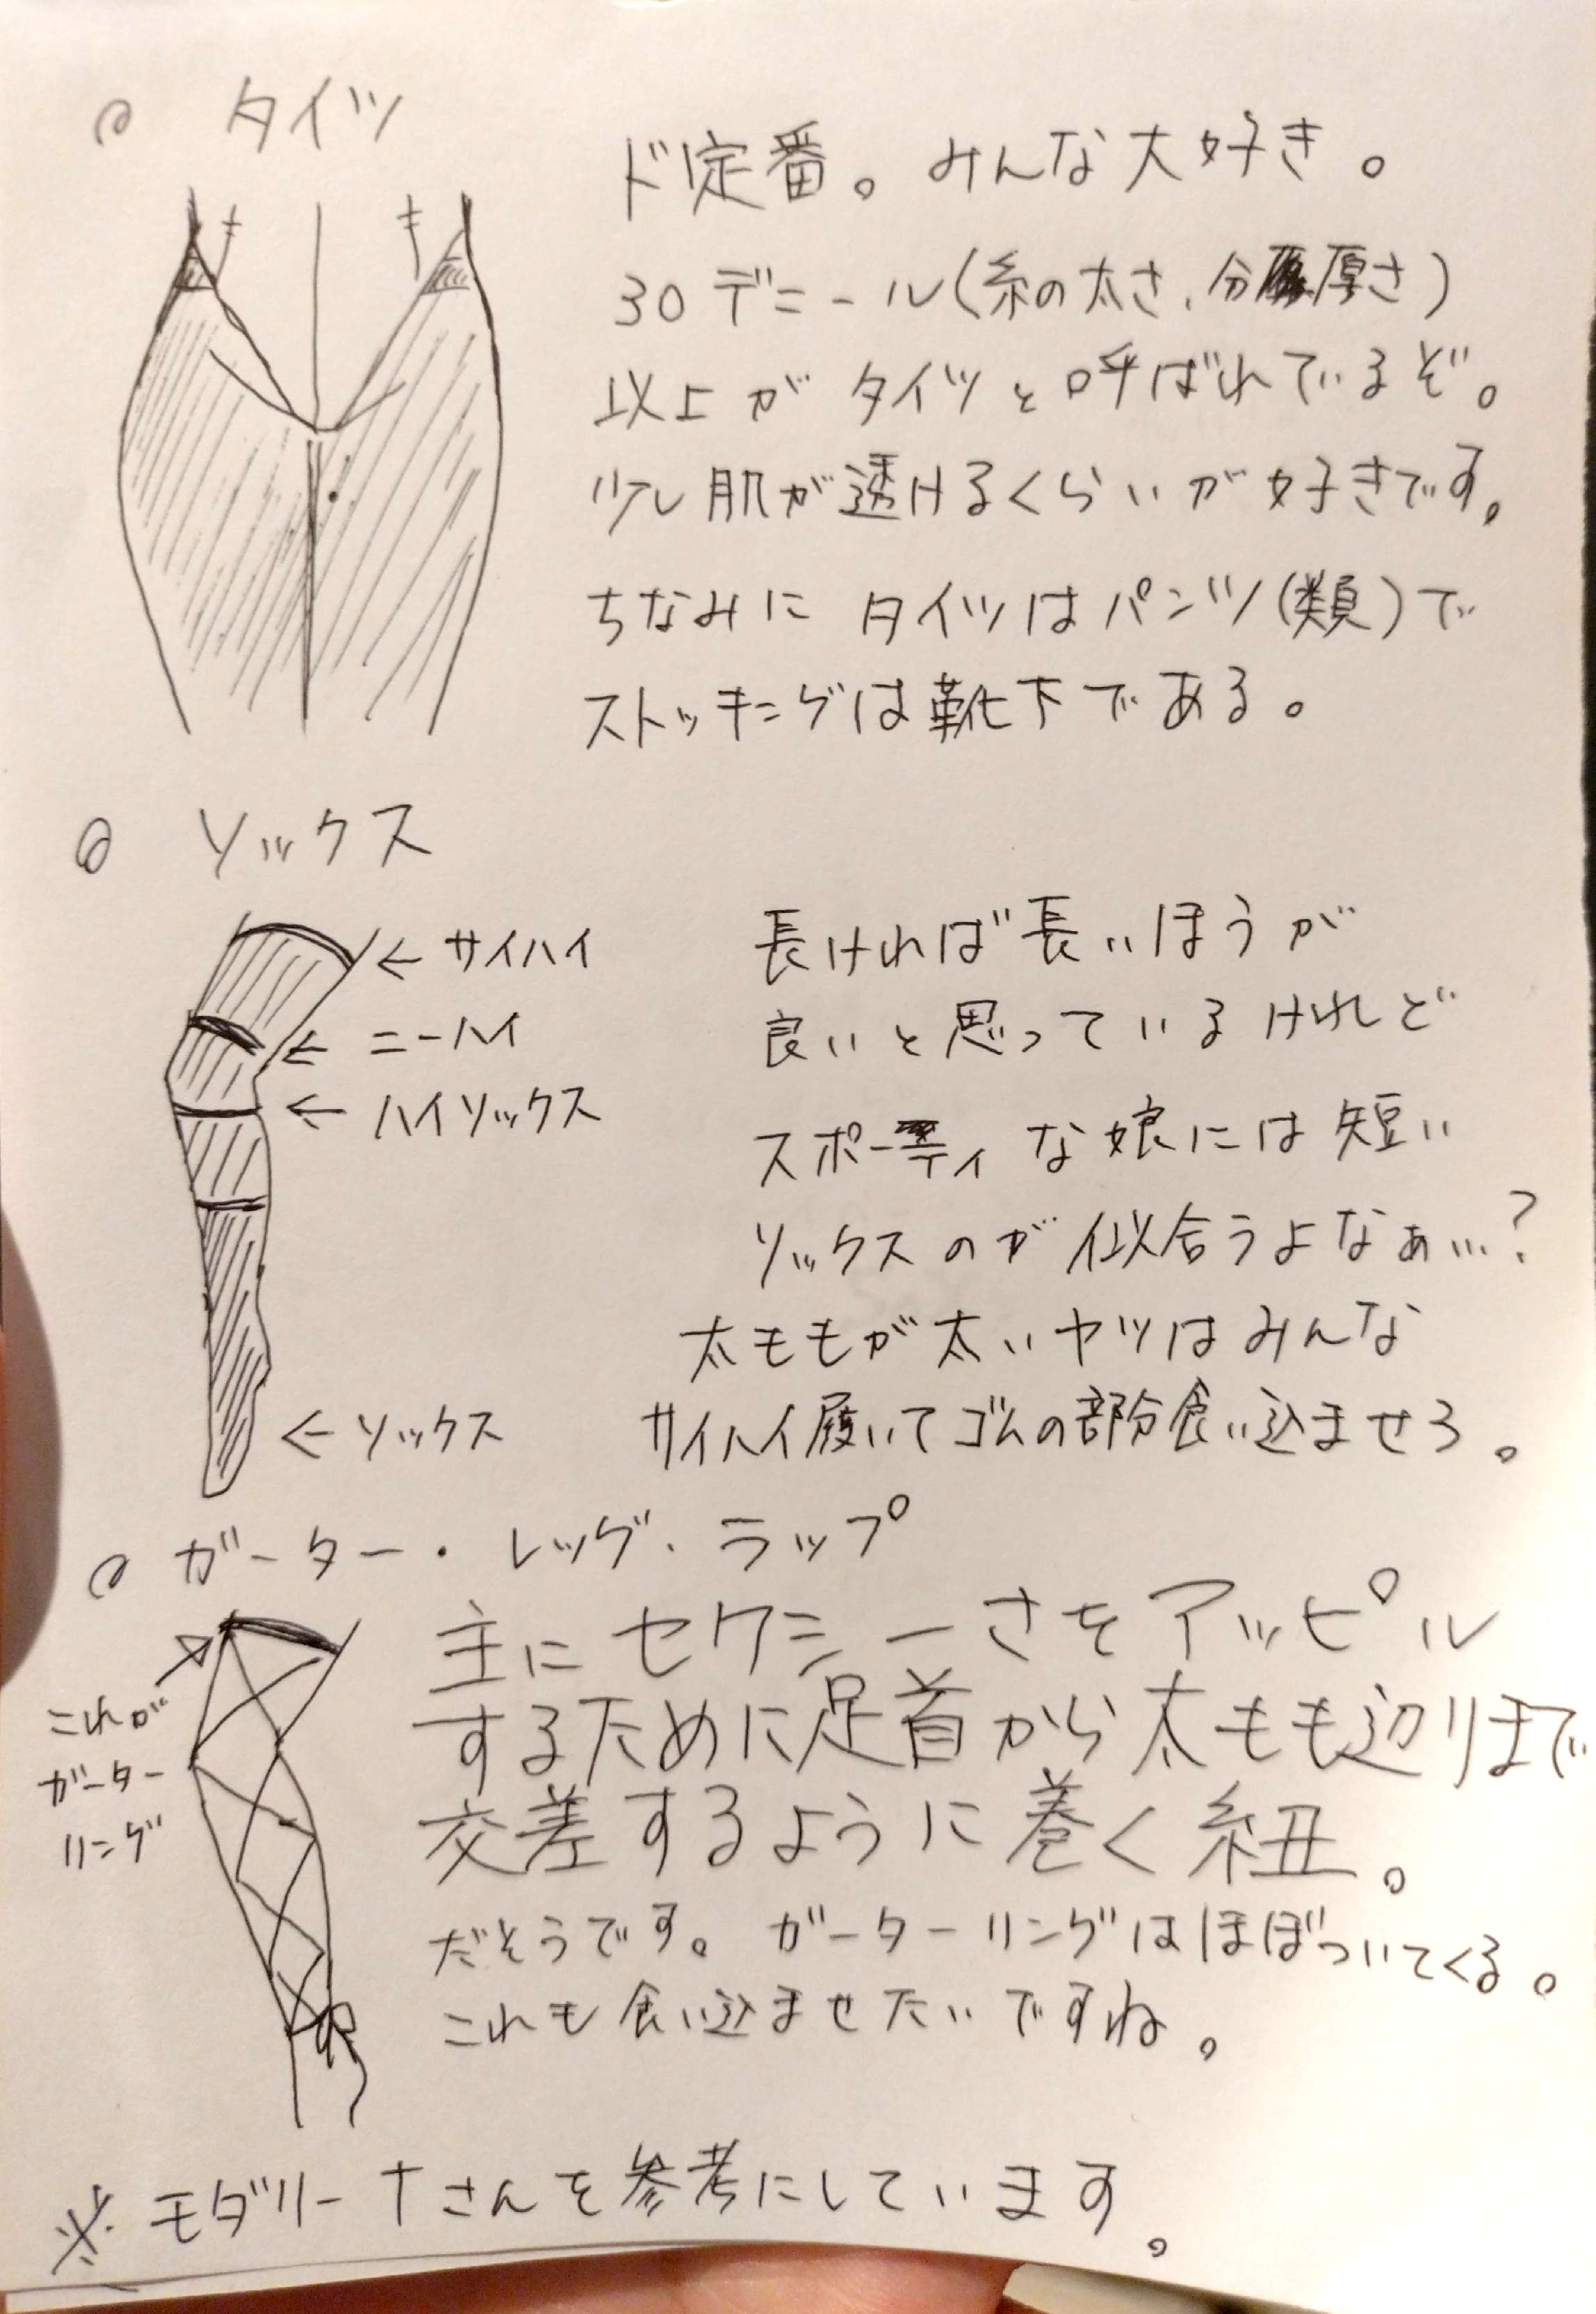 タイツ
ド定番。みんな大好き。
30デニール(糸の太さ、分厚さ)
以上がタイツと呼ばれているぞ。
少し肌が透けるくらいが好きです。
ちなみにタイツはパンツ(類)で
ストッキングは靴下である。
ソックス
←サイハイ
←ニーハイ
←ハイソックス
←ソックス
長ければ長いほうが
良いと思っているけれど
スポーティな娘には短い
ソックスのが似合うよなぁ…?
太ももが太いヤツはみんな
サイハイ履いてゴムの部分食い込ませろ。
ガーター・レッグ・ラップ
これが
ガーター
リング
主にセクシーさをアッピル
するために足首から太もも辺りまで
交差するように巻く紐。
だそうです。ガーターリングはほぼついてくる。
これも食い込ませたいですね。
※モダリーナさんを参考にしています。